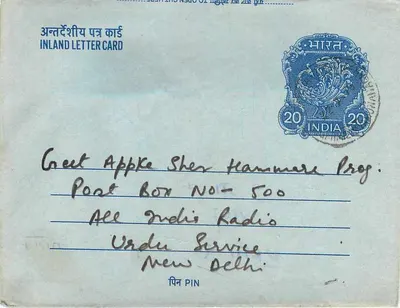 अन्तर्देशीय पत्र कार्ड
INLAND LETTER CARD
भारत
20 20
INDIA
Geet Appke Sher Hammare Prog.
Post Box No- 500
All India Radio
Urdu Service
New Delhi
पिन PIN